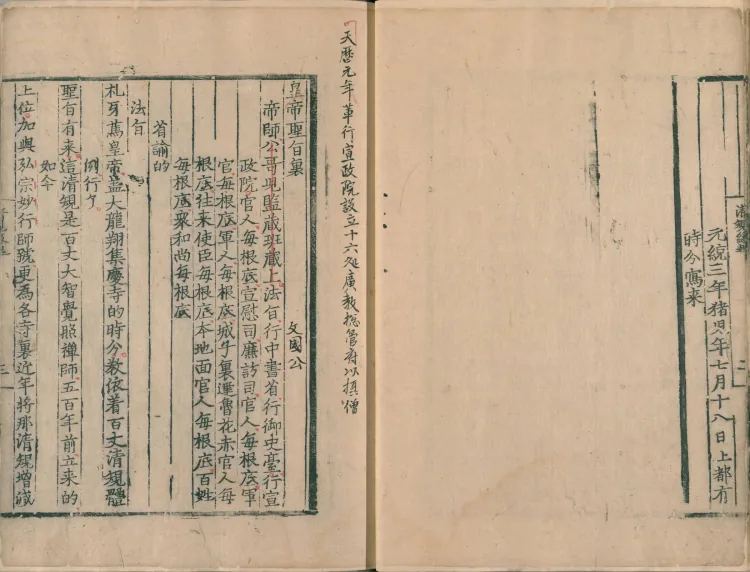 元統三年猪兒年七月十八日上都有
時分寫来
天曆元年革行宣政院設立十六处廣教揔管府以摂僧
皇帝聖旨裏 文國公
帝師公哥兒監藏班藏上法旨行中書省行御史臺行宣
政院官人每根底宣慰司廉訪司官人每根底軍
官每根底軍人每根底城子裏達魯花赤官人每
根底往来使臣每根底本地面官人每根底百姓
每根底衆和尚每根底
省諭的
法旨
札牙篤皇帝盖大龍翔集慶寺的時分教依着百丈清規體
例行了
聖旨有来這清規是百丈大智覺照禪師五百年前立来的
如今
上位加與弘宗妙行師號更為各寺裏近年將那清規增減